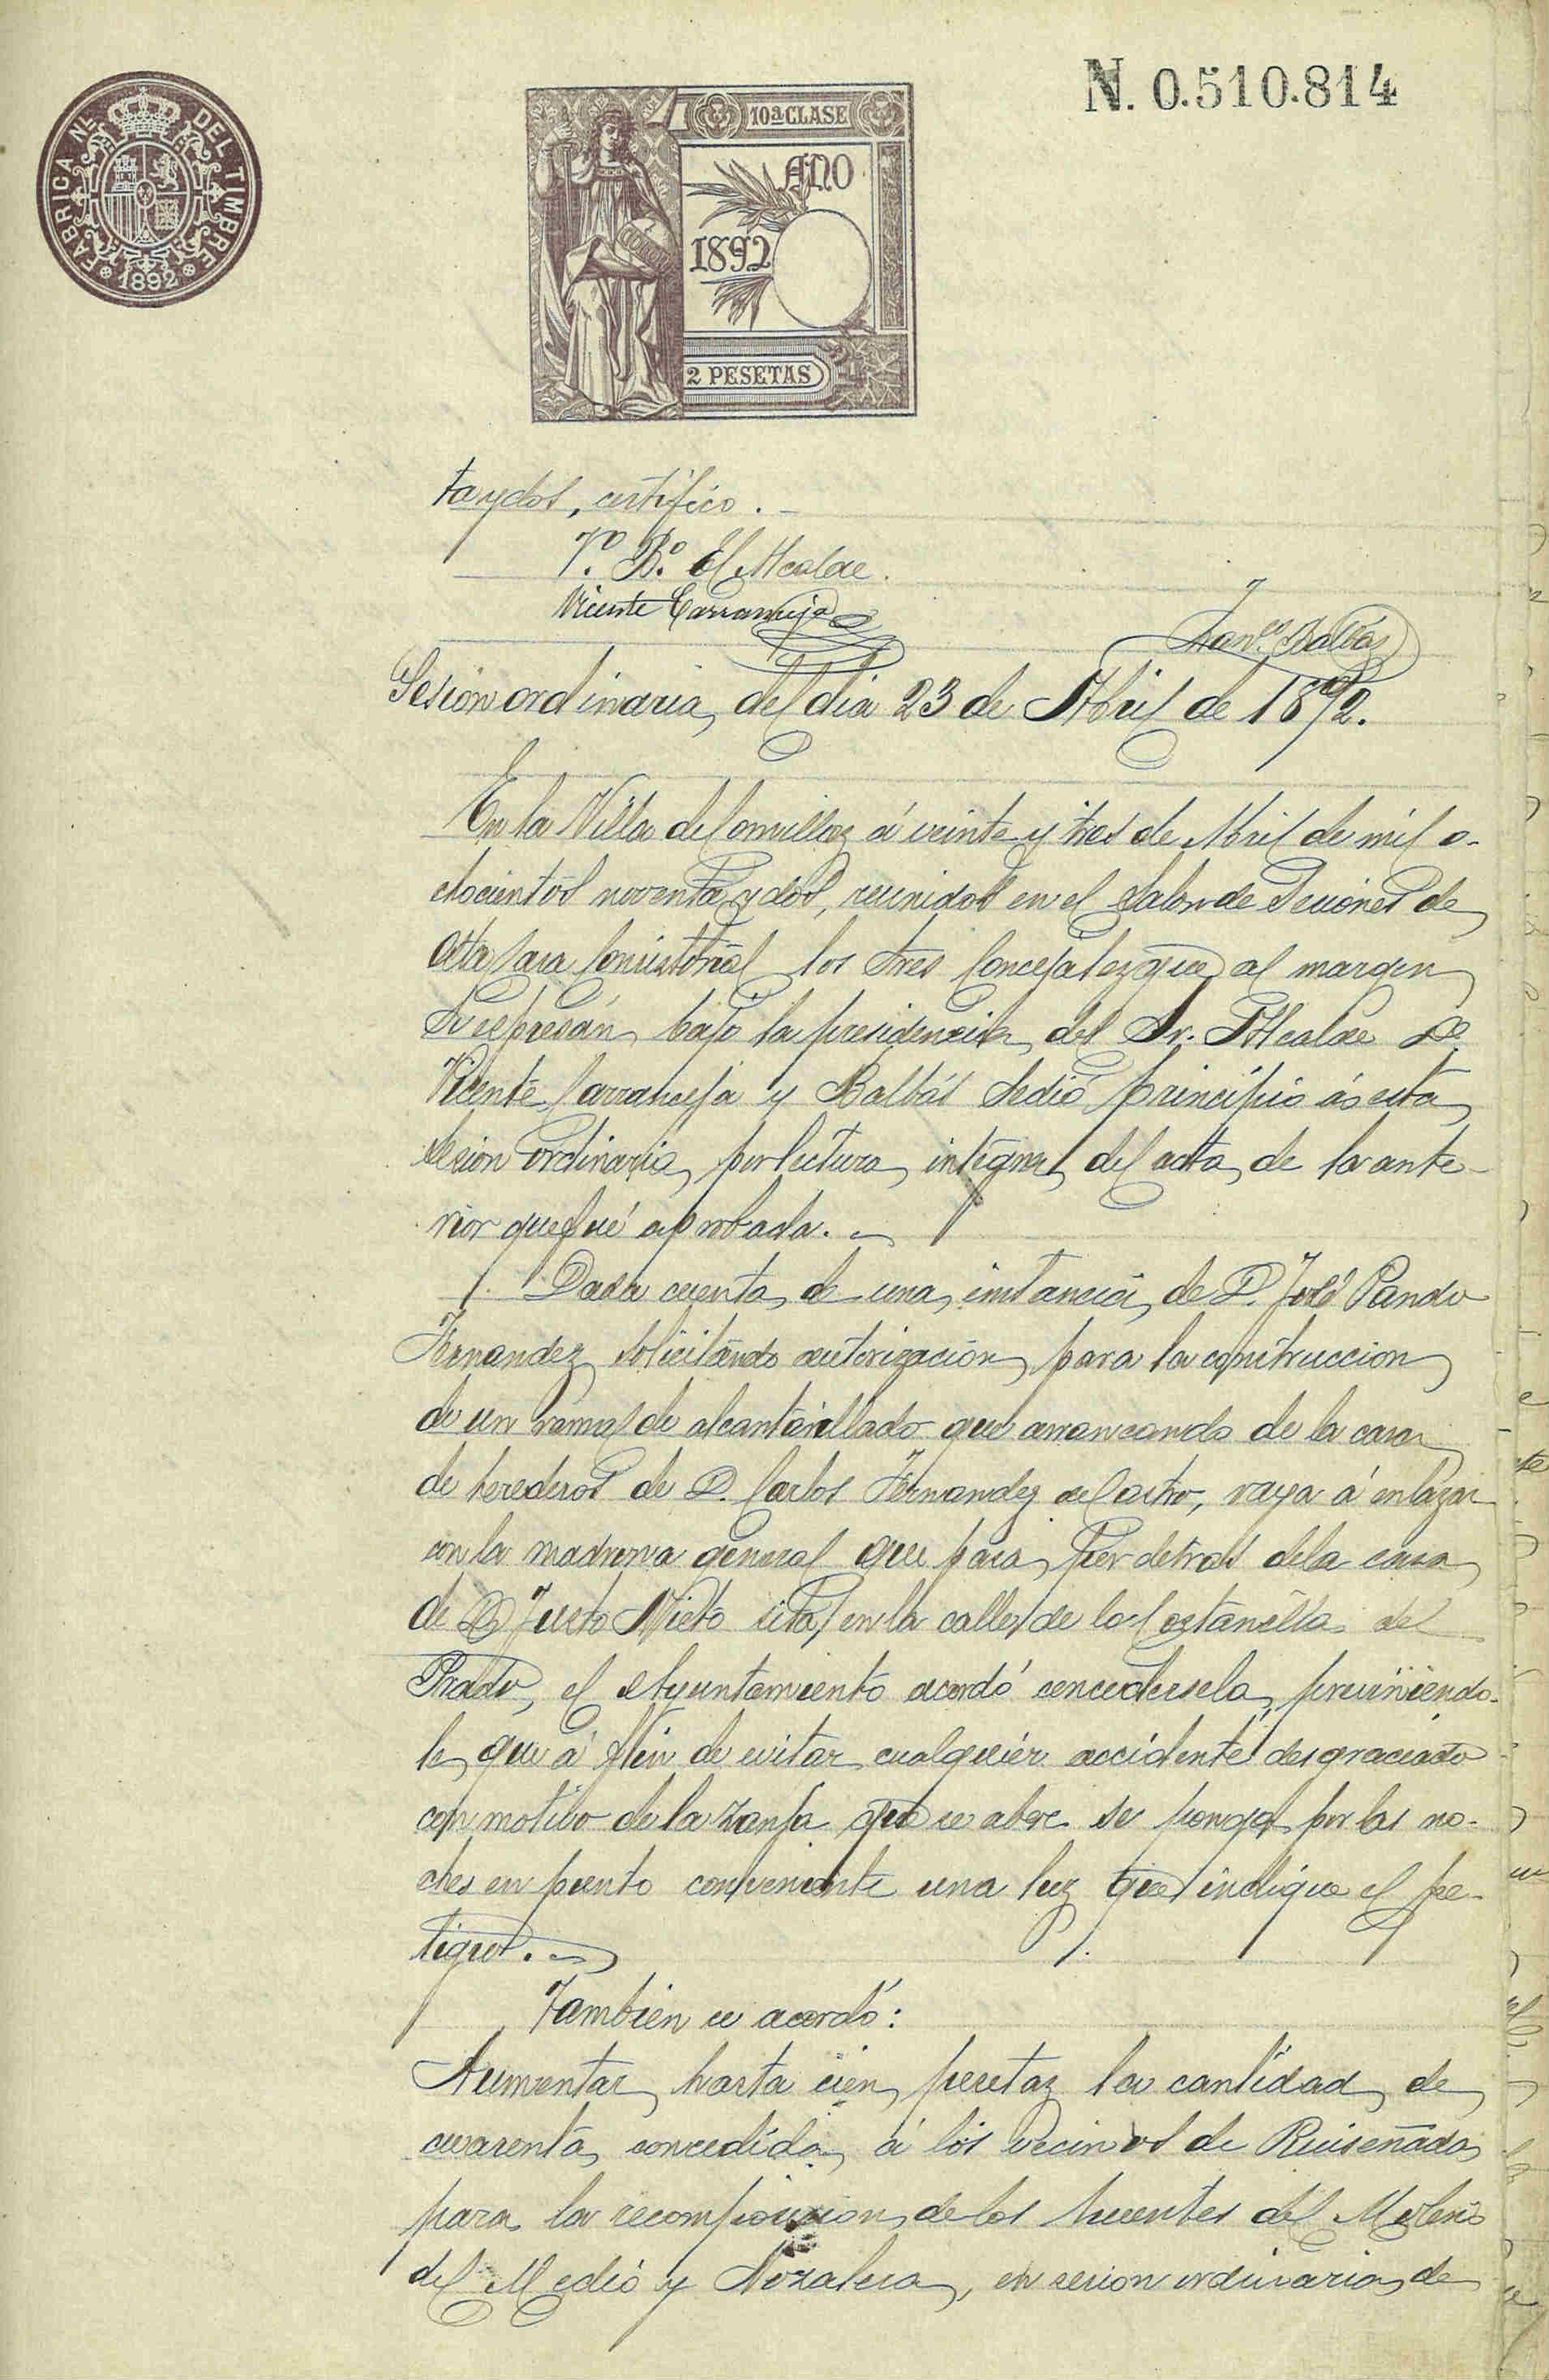 N. 0.510.814
FABRICA Nal DEL TIMBRE
1892
10ª CLASE
AÑO
1892
2 PESETAS
ta y dos, certifico.
Vº. Bº. El Alcalde.
Vicente Carranceja
Franco. Balbas
Sesion ordinaria, del dia 23 de Abril de 1892.
En la Villa de Comillas á veinte y tres de Abril de mil o-
chocientos noventa y dos, reunidos en el Salon de Sesiones de
esta Casa Consistorial los Sres Concejales que al margen
se espresan, bajo la presidencia del Sr. Alcalde Dn.
Vicente Carranceja y Balbás se dió principio á esta
sesion ordinaria, por lectura integra del acta de la ante-
rior que fué aprobada.
Dada cuenta de una instancia de D. José Pando
Fernandez solicitando autorizacion para la construccion
de un ramal de alcantarillado que arrancando de la casa
de herederos de D. Carlos Fernandez de Castro, vaya á enlazar
con la madrona general que pasa por detras de la casa
de D. Justo Nieto sita en la calle de la Costanilla del
Prado, el Ayuntamiento acordó concedersela, previniendo-
le que á fin de evitar cualquier accidente desgraciado
con motivo de la zanja que se abre se ponga por las no-
ches en punto conveniente una luz que indique el pe-
ligro.
Tambien se acordó:
Aumentar hasta cien pesetas la cantidad de
cuarenta concedida á los vecinos de Ruiseñada
para la recomposicion de los puentes del Molino
del Medio y Nozaleda, en sesion ordinaria de